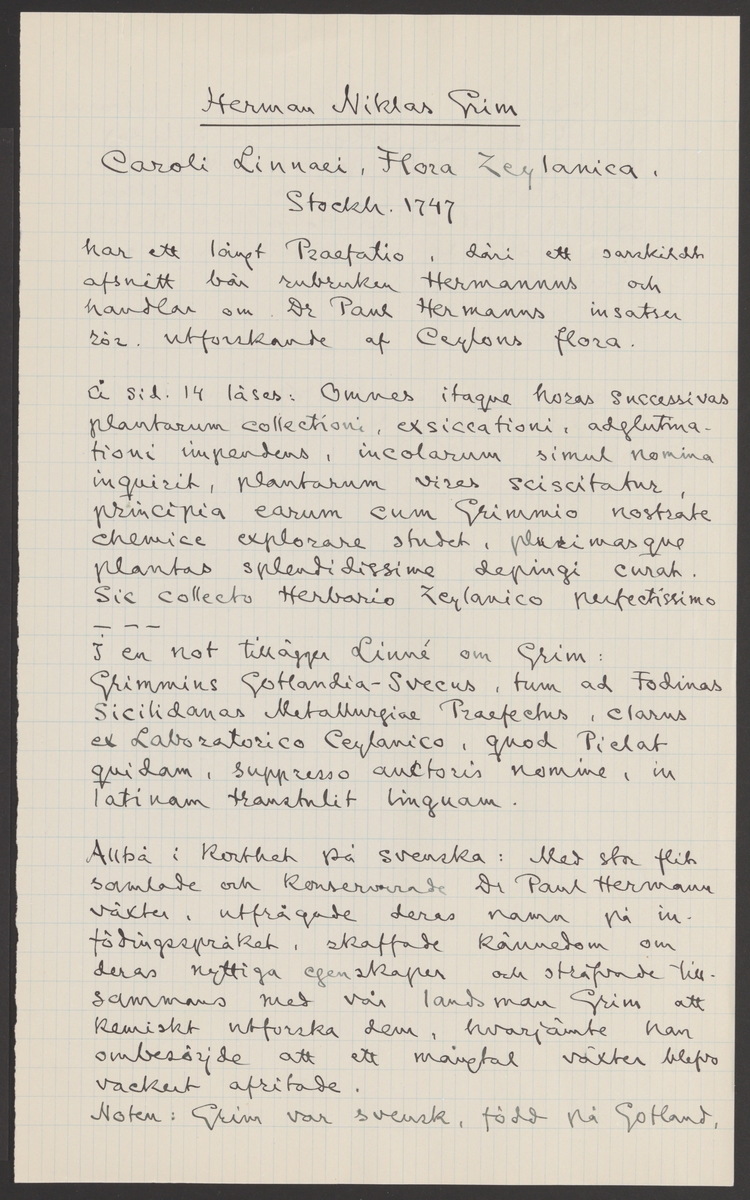 Herman Niklas Grim
Caroli Linnaei, Flora Zeylanica,
Stockh. 1747
har ett långt Praefatio, däri ett särskildt
afsnitt bär rubruken Hermannus och
handlar om Dr Paul Hermanns insatser
rör. utforskande af Ceylons flora.
Å sid. 14 läses: Omnes itaque horas successivas
plantarum collectioni, exsiccationi, adglutina-
tioni impendens, incolarum simul nomina
inquirit, plantarum vires sciscitatur,
principia earum cum Grimmio nostrate
chemice explorare studet, plurimasque
plantas splendidissime depingi curat.
Sic collecto Herbario Zeylanico perfectissimo
— — —
I en not tillägger Linné om Grim:
Grimmius Gotlandia-Svecus, tum ad Fodinas
Sicilidanas Metallurgiae Praefectus, clarus
ex Laboratorico Ceylanico, quod Pielat
quidam, suppresso auctoris nomine, in
latinam transtulit linguam.
Alltså i korthet på svenska: Med stor flit
samlade och konserverade Dr Paul Hermann
växter, utfrågade deras namn på in-
födingsspråket, skaffade kännedom om
deras nyttiga egenskaper och sträfvade till-
sammans med vår landsman Grim att
kemiskt utforska dem, hvarjämte han
ombesörjde att ett mångtal växter blefvo
vackert afritade.
Noten: Grim var svensk, född på Gotland,